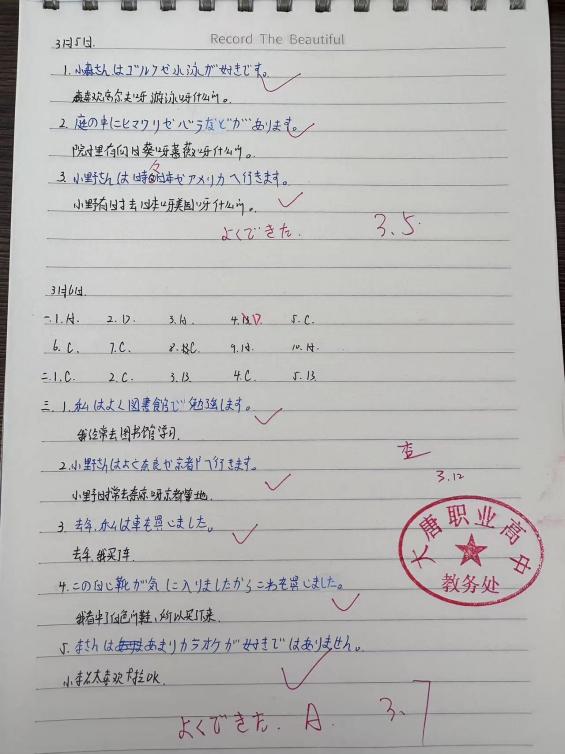 Record The Beautiful
3月5日.
1. 小森さんはゴルフや水泳が好きです。
森喜欢高尔夫呀游泳呀什么的。
2. 庭の中にヒマワリやバラなどがあります。
院子里有向日葵呀蔷薇呀什么的。
3. 小野さんは時々日本やアメリカへ行きます。
小野有时去日本呀美国呀什么的。
よくできた. 3.5.
3月6日.
一. 1. A. 2. D. 3. A. 4. D. 5. C.
6. C. 7. C. 8. C. 9. A. 10. A.
二. 1. C. 2. C. 3. B. 4. C 5. B.
三. 1. 私はよく図書館で勉強します。
我经常去图书馆学习.
2. 小野さんはよく奈良や京都へ行きます。
小野时常去奈良呀京都等地.
查
3.12
3. 去年、私は車を買いました。
去年、我买了车.
大唐职业高中
教务处
4. この白い靴が気に入りましたからこれを買いました。
我看中了白色的鞋, 所以买下来.
5. 李さんはあまりカラオケが好きではありません。
小李不太喜欢卡拉OK.
よくできた. A. 3.7